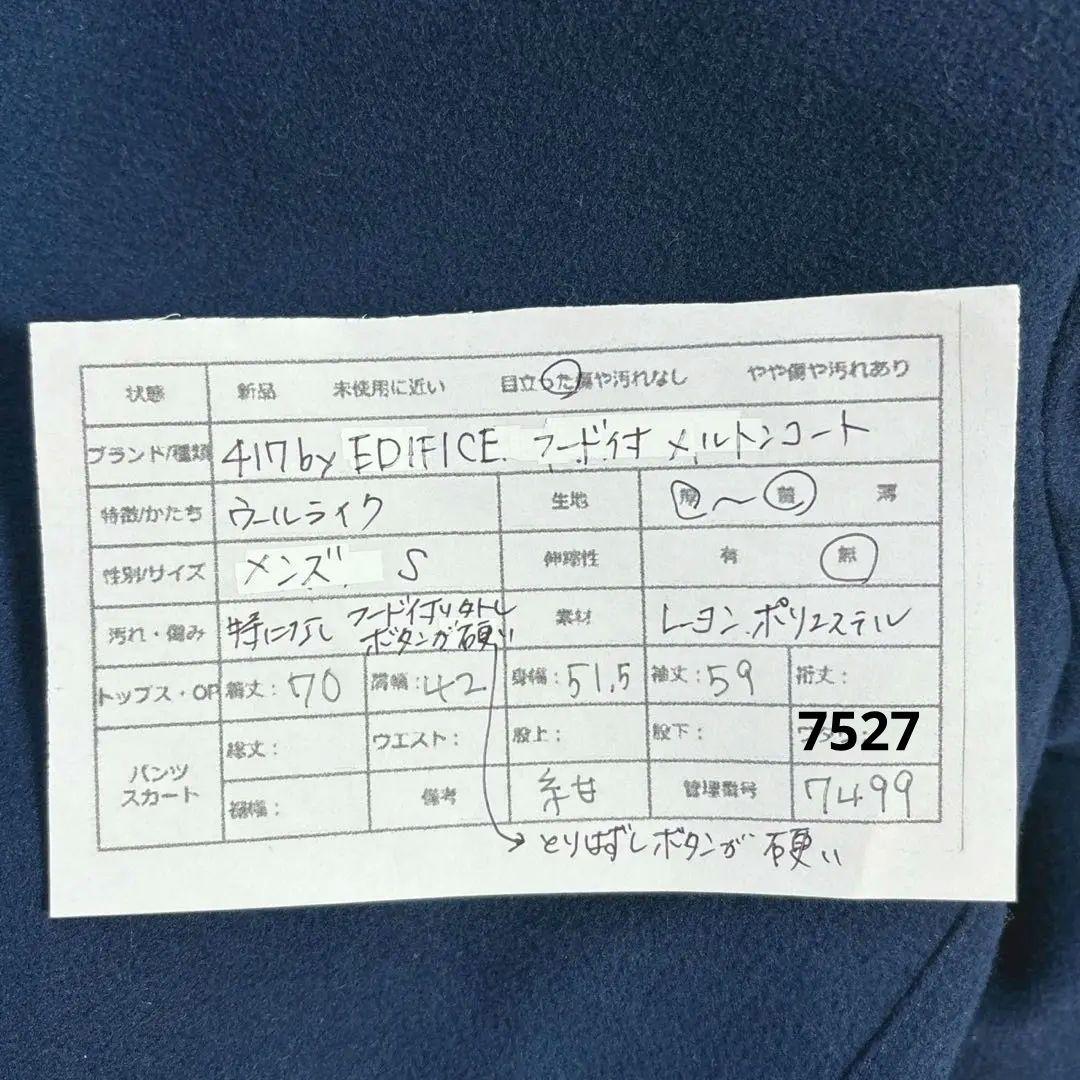 状態 新品 未使用に近い 目立った傷や汚れなし やや傷や汚れあり
ブランド/種類 417by EDIFICE フード付 メルトンコート
特徴/かたち ウールライク 生地 厚〜普 薄
性別/サイズ メンズ S 伸縮性 有 無
汚れ・傷み 特になし フード付け外し 素材 レーヨン.ポリエステル
ボタンが硬い
トップス・OP 着丈:70 肩幅:42 身幅:51,5 袖丈:59 裄丈:
パンツ スカート 総丈: ウエスト: 股上: 股下:
7527
裾幅: 備考 紺 管理番号 7499
とりはずしボタンが硬い